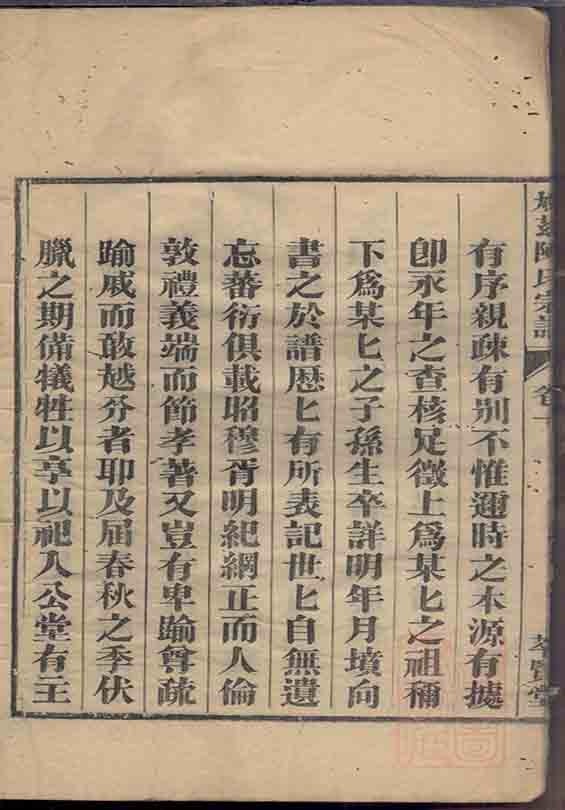 陳氏宗譜
卷一
萃賢堂
有序親疎有别不惟邇時之木源有據
卽永年之查核足徵上爲某匕之祖禰
下爲某匕之子孫生卒詳明年月墳向
書之於譜歷匕有所表記世匕自無遺
忘蕃衍俱載昭穆胥明紀綱正而人倫
敦禮義端而節孝著又豈有卑踰尊疏
踰戚而敢越分者耶及届春秋之季伏
臘之期備犧牲以享以祀入公堂有主